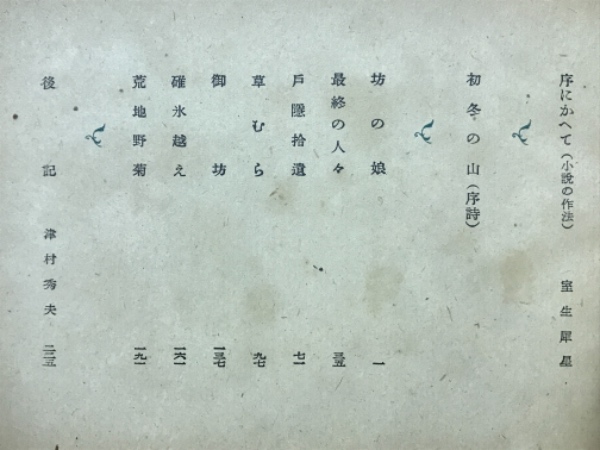 序にかへて(小說の作法) 室生犀星
初冬の山(序詩)
坊の娘 一
最終の人々 三五
戶隱拾遺 七一
草むら 九七
御坊 一三七
碓氷越え 一六一
荒地野菊 一九一
後記 津村秀夫 二三五